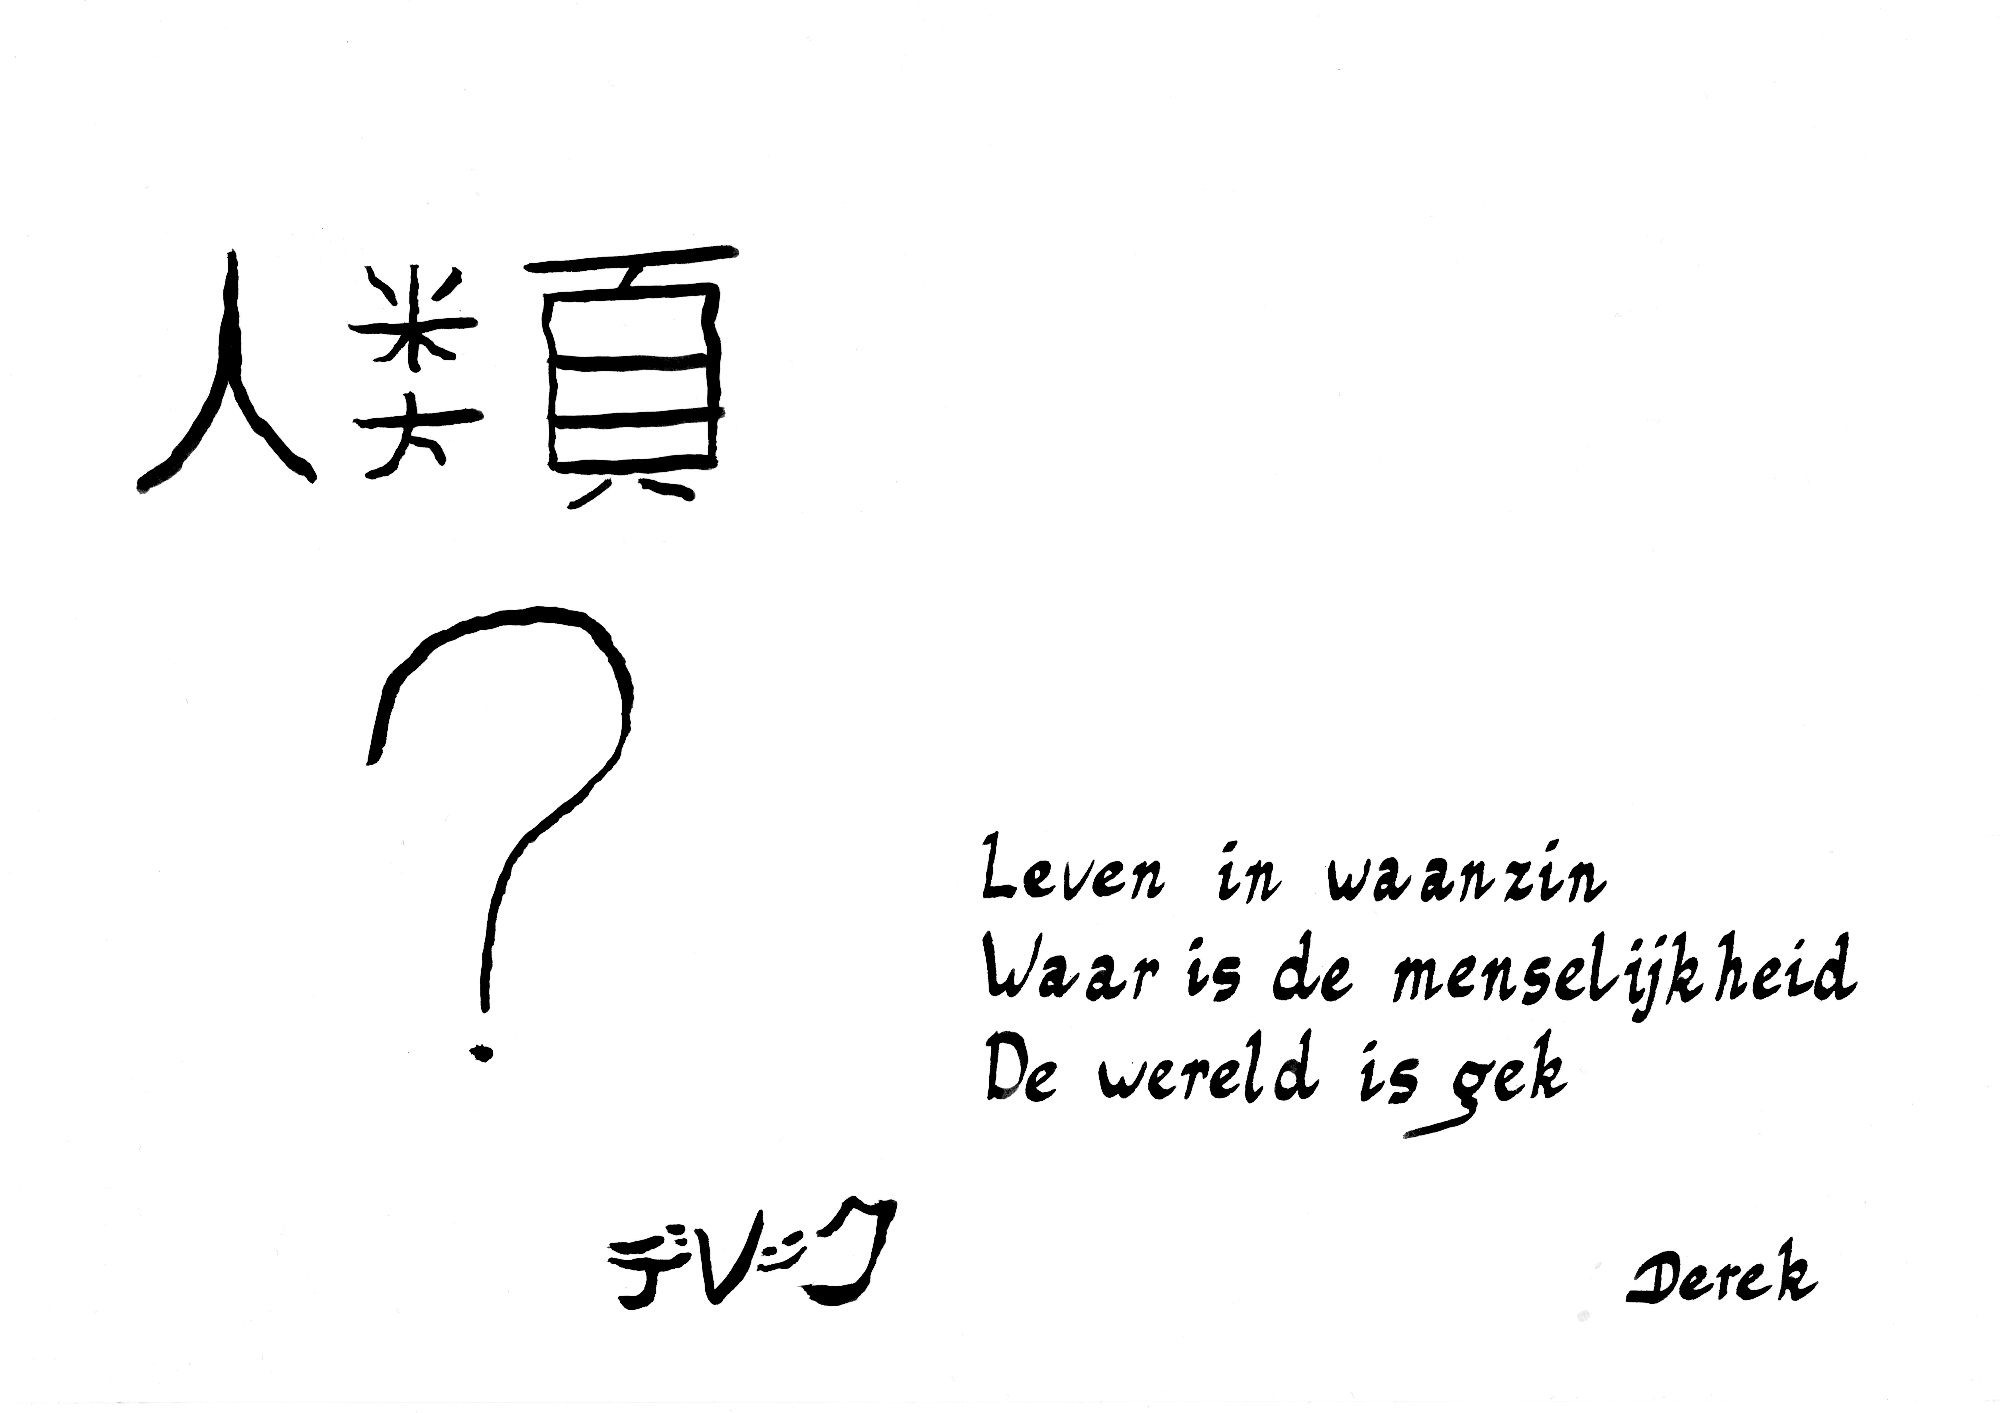 人類
?
Leven in waanzin
Waar is de menselijkheid
De wereld is gek
デレック
Derek